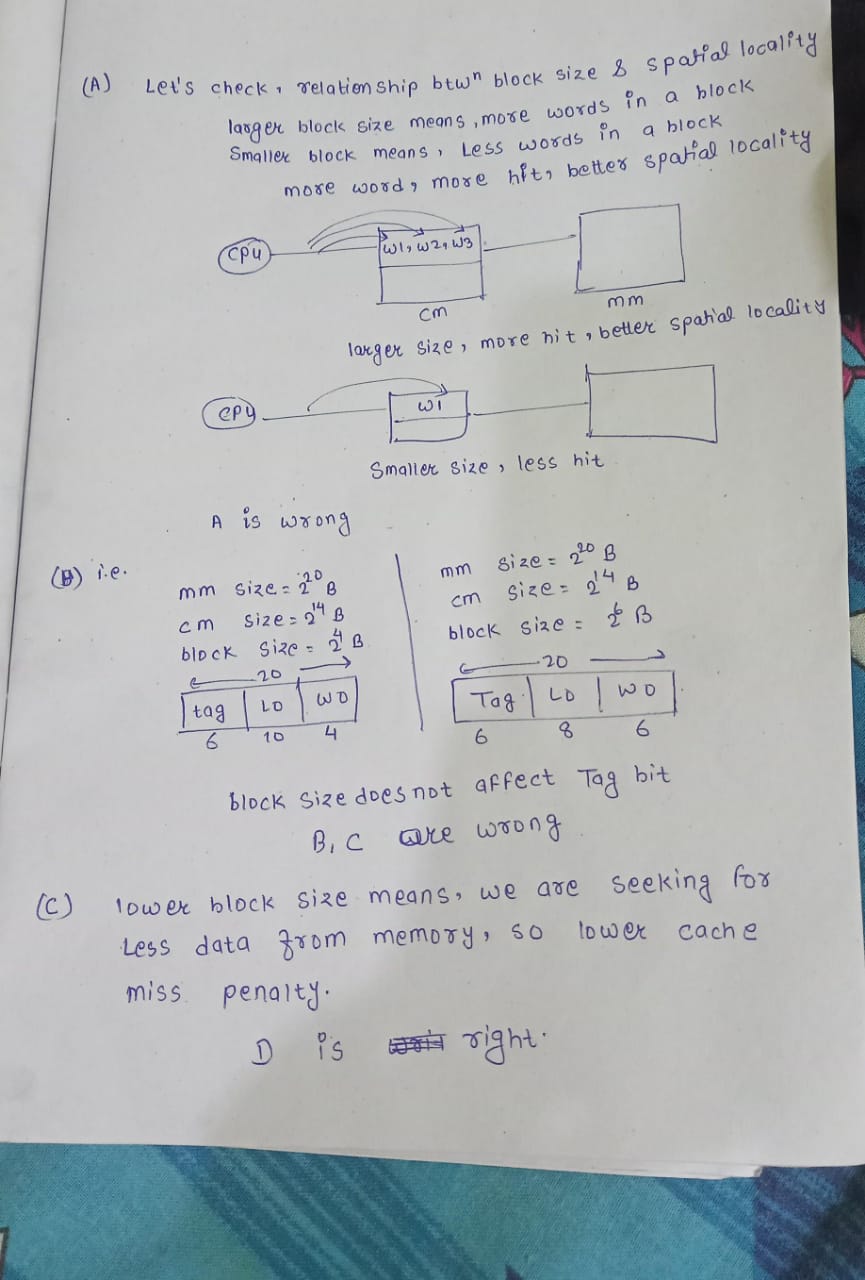 (A) Let's check, relationship btwn block size & spatial locality
larger block size means, more words in a block
Smaller block means, Less words in a block
more word, more hit, better spatial locality
CPU
W1, W2, W3
cm
mm
larger size, more hit, better spatial locality
CPU
W1
Smaller size, less hit
A is wrong
(B) i.e.
mm size = 2^20 B
cm size = 2^14 B
block size = 2^4 B
20
tag LO WO
6 10 4
mm size = 2^20 B
cm size = 2^14 B
block size = 2^6 B
20
Tag LO WO
6 8 6
block size does not affect Tag bit
B, C are wrong
(C) lower block size means, we are seeking for
Less data from memory, so lower cache
miss penalty.
D is right.